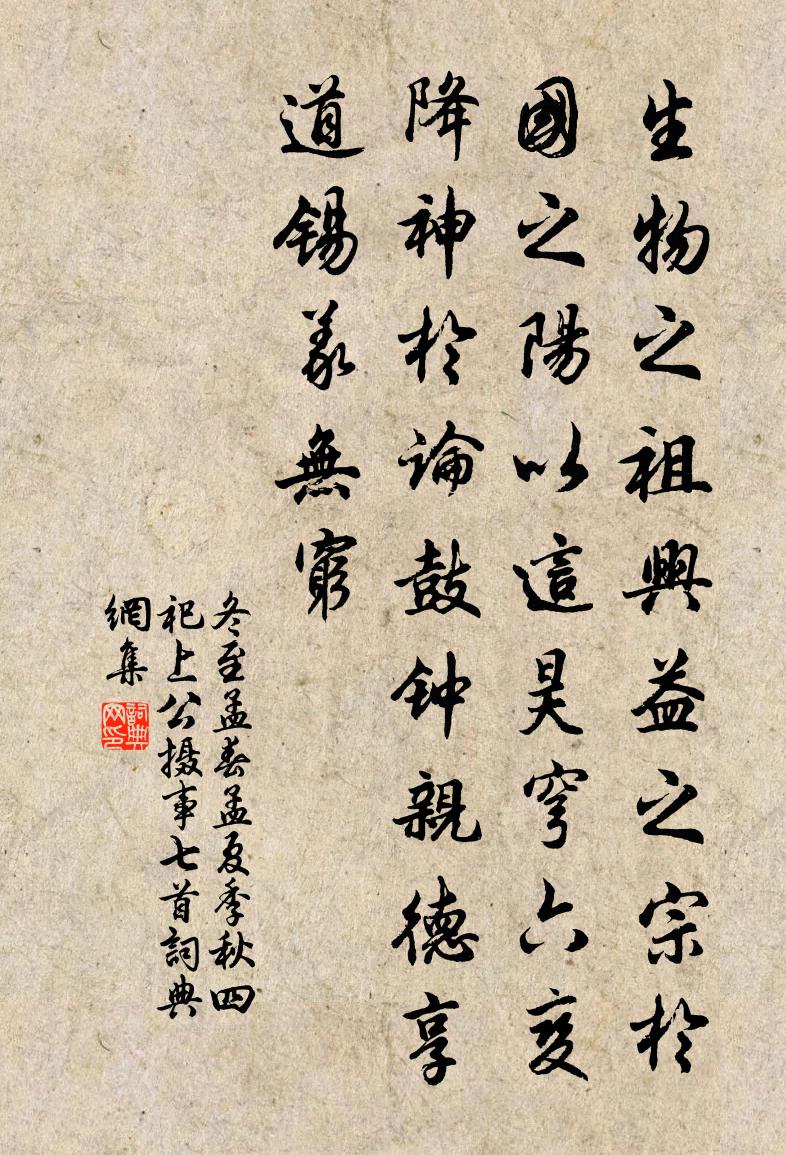 生物之祖興益之宗於
國之陽以這昊穹六变
降神於論鼓钟親德享
道锡羕無窮
冬至孟春孟夏季秋四
祀上公摄事七首詞典
網集
詞典
网印